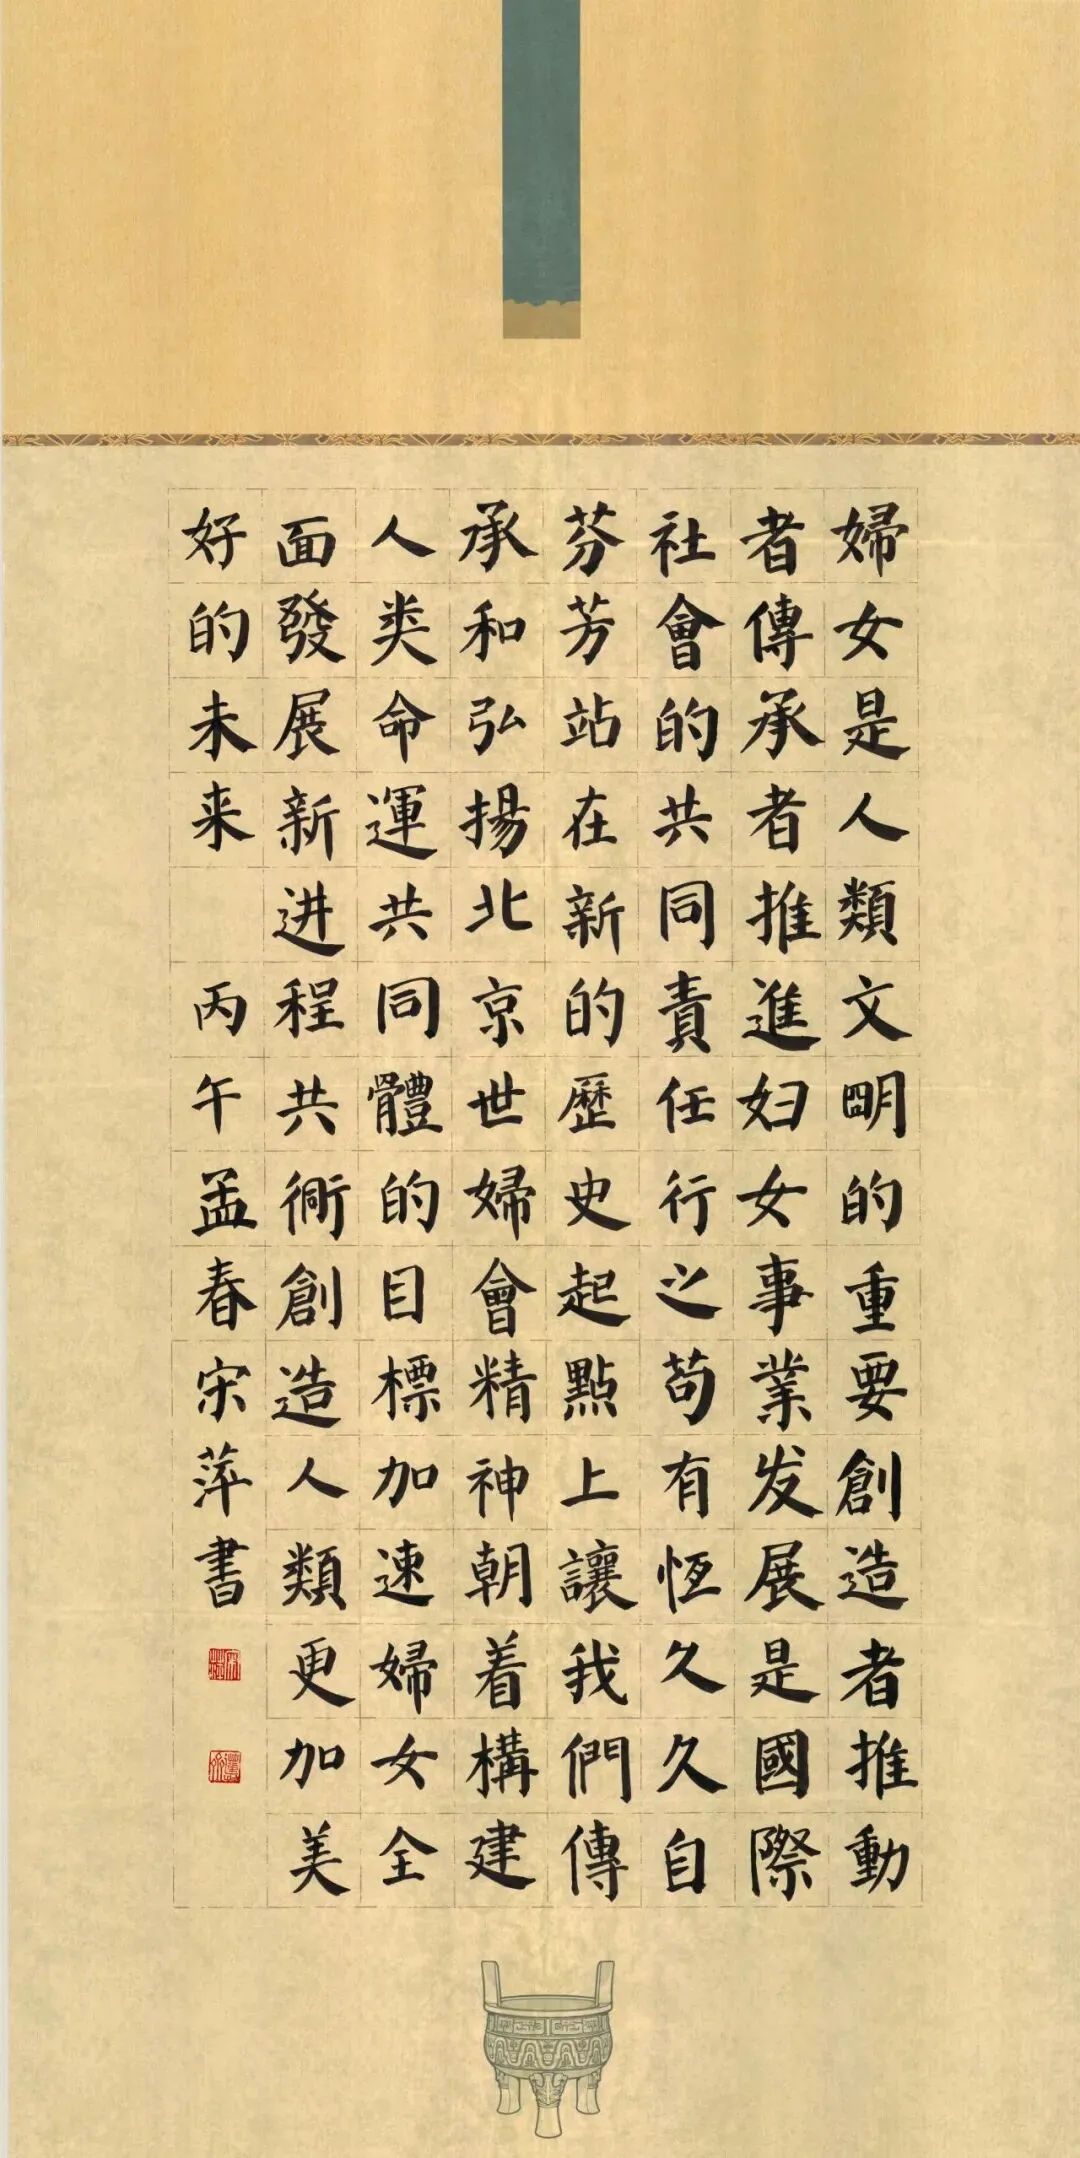 婦女是人類文朙的重要創造者推動
者傳承者推進妇女事業发展是國際
社會的共同責任行之苟有恆久久自
芬芳站在新的歷史起點上讓我們傳
承和弘揚北京世婦會精神朝着構建
人类命運共同體的目標加速婦女全
面發展新进程共衕創造人類更加美
好的未来 丙午孟春宋萍書